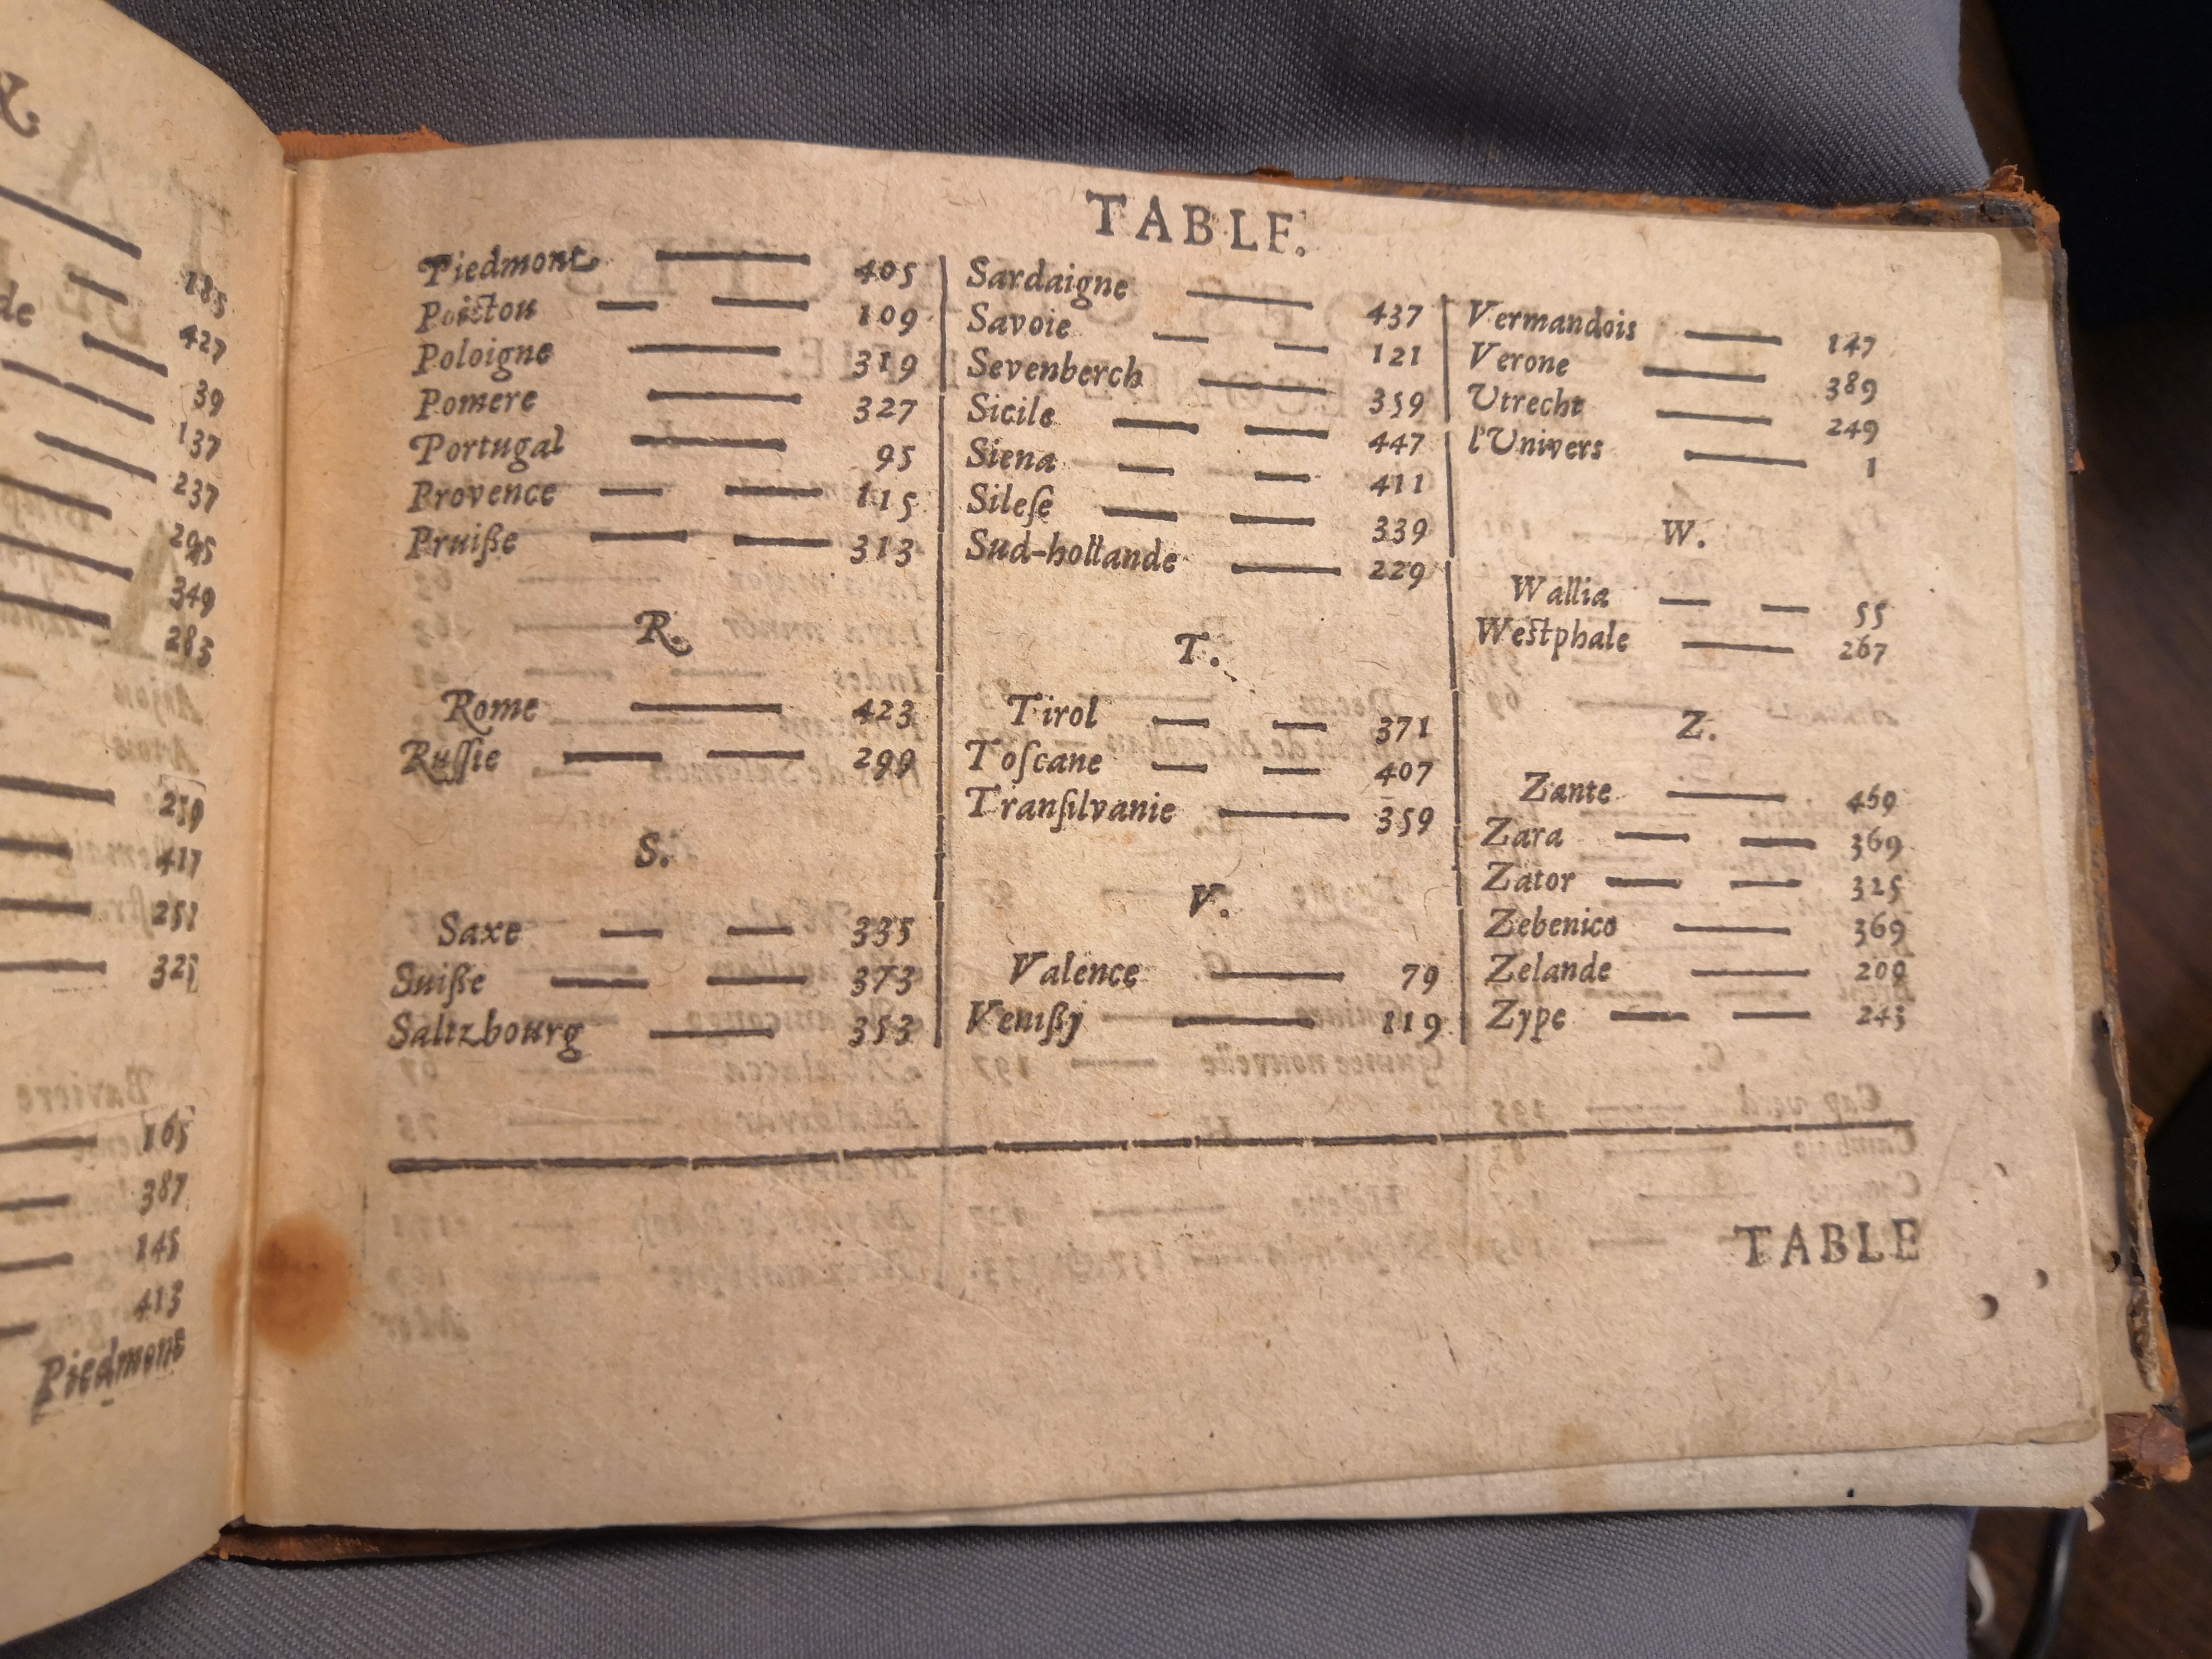 185
de
427
39
137
237
295
349
283
239
417
251
325
165
387
145
413
Piedmont
TABLE.
Piedmont 405
Poictou 109
Poloigne 319
Pomere 327
Portugal 95
Provence 115
Pruiße 313
R.
Rome 423
Ruſſie 299
S.
Saxe 335
Suiße 373
Saltzbourg 353
Sardaigne 437
Savoie 121
Sevenberch 359
Sicile 447
Siena 411
Sileſe 339
Sud-hollande 229
T.
Tirol 371
Toſcane 407
Tranſilvanie 359
V.
Valence 79
Venißy 119
Vermandois 147
Verone 389
Utrecht 249
l'Univers 1
W.
Wallia 55
Westphale 267
Z.
Zante 469
Zara 369
Zator 325
Zebenico 369
Zelande 209
Zype 243
TABLE